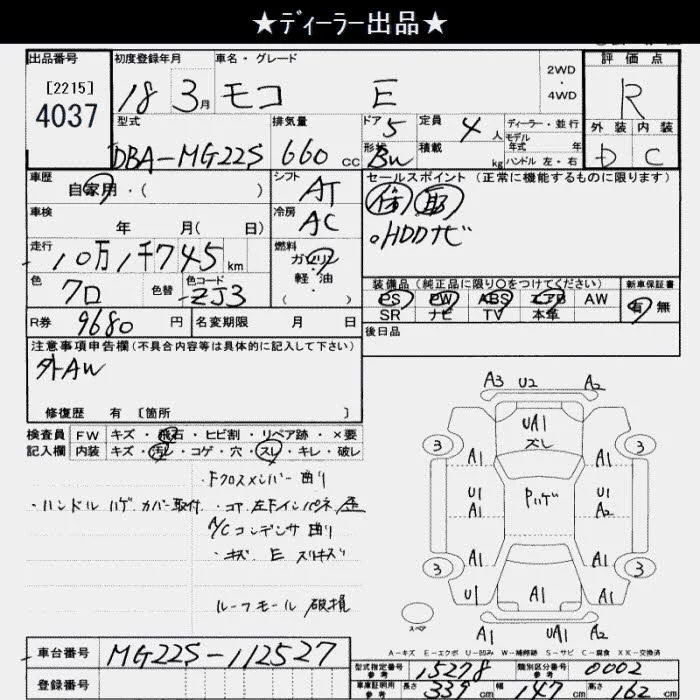 ★ディーラー出品★
出品番号
[2215]
4037
初度登録年月
18 3月
車名・グレード
モコ E
2WD
・
4WD
評価点
R
外装 内装
D C
型式
DBA-MG22S
排気量
660 cc
ドア 5
定員 4人
形状 BW
積載 kg
ディーラー・並行
モデル
年式 年
ハンドル 左・右
車歴
自家用・( )
シフト
AT
セールスポイント (正常に機能するものに限ります)
倍 取
。HDDナビ
車検
年 月( 日)
冷房
AC
走行
10万1千745km
燃料
ガソリン
軽・油
( )
色
クロ
色替
色コード
ZJ3
装備品(純正品に限り○をつけてください)
新車保証書
PS PW ABS エアB AW
SR ナビ TV 本革
有 無
R券 9680円
名変期限 月 日
後日品
注意事項申告欄(不具合内容等は具体的に記入して下さい)
外AW
修復歴 有 [箇所 ]
検査員
記入欄
FW キズ・飛石・ヒビ割・リペア跡・×要
内装 キズ・汚レ・コゲ・穴・スレ・キレ・破レ
・Fクロスメンバー曲り
・ハンドルハゲ カバー取付
・コア、左Fインパネ歪
A/Cコンデンサ曲り
・キズ、E スリキズ
ルーフモール破損
A3 U2 A2
UA1
ズレ
3 3
A1 A1
U1 Pハゲ U1
A1 A2
A1 A1
3 3
U1 A1 A1
A1 UA1 U1
スペア
A-キズ E-エクボ U-凹み W-補修跡 S-サビ C-腐食 XX-交換済
車台番号 MG22S-112527
登録番号
型式指定番号
参考
15278
類別区分番号
参考
0002
車庫証明用
参考
長さ 339cm 幅 147cm 高さ 162cm